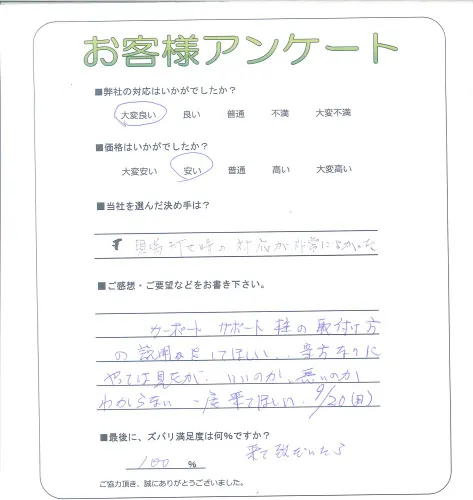 お客様アンケート
■弊社の対応はいかがでしたか？
大変良い 良い 普通 不満 大変不満
■価格はいかがでしたか？
大変安い 安い 普通 高い 大変高い
■当社を選んだ決め手は？
現場打せ時の対応が非常によかった
■ご感想・ご要望などをお書き下さい。
カーポート サポート柱の取付け方
の説明を としてほしい、当方なりに
やっては見たが、いいのか、悪いのか
わからない 一度来てほしい、9/20(日)
■最後に、ズバリ満足度は何%ですか？
来て頂いたら
100 %
ご協力頂き、誠にありがとうございました。